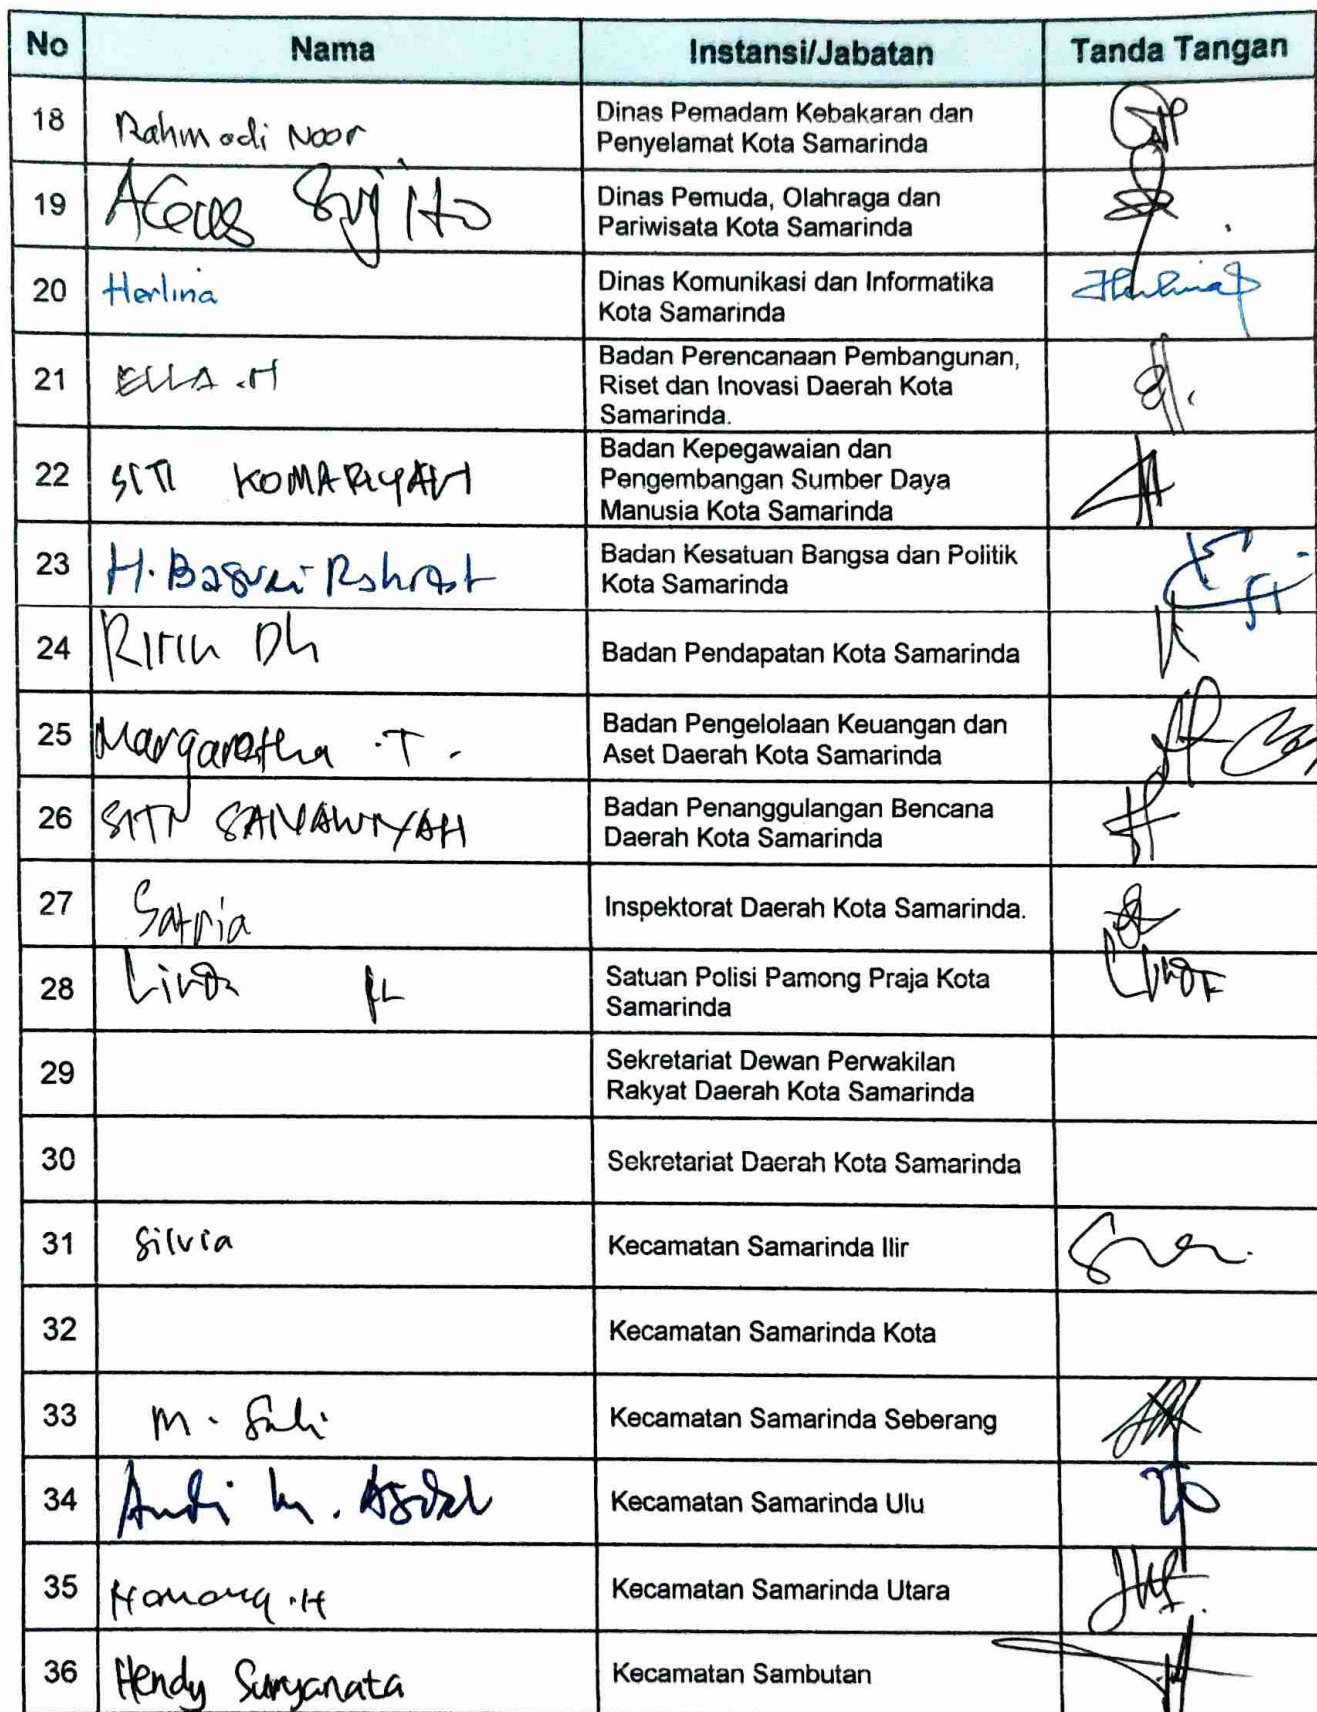 No Nama Instansi/Jabatan Tanda Tangan
18 Rahmadi Noor Dinas Pemadam Kebakaran dan
Penyelamat Kota Samarinda
19 AGUS Sujito Dinas Pemuda, Olahraga dan
Pariwisata Kota Samarinda
20 Herlina Dinas Komunikasi dan Informatika
Kota Samarinda Herlina
21 ELLA .H Badan Perencanaan Pembangunan,
Riset dan Inovasi Daerah Kota
Samarinda.
22 SITI KOMARIYAH Badan Kepegawaian dan
Pengembangan Sumber Daya
Manusia Kota Samarinda
23 H. Badan Kesatuan Bangsa dan Politik
Kota Samarinda
24 Ririn Dh Badan Pendapatan Kota Samarinda
25 Margaretha .T. Badan Pengelolaan Keuangan dan
Aset Daerah Kota Samarinda
26 SITI SANIAWIYAH Badan Penanggulangan Bencana
Daerah Kota Samarinda
27 Satria Inspektorat Daerah Kota Samarinda.
28 Linda Satuan Polisi Pamong Praja Kota
Samarinda
29 Sekretariat Dewan Perwakilan
Rakyat Daerah Kota Samarinda
30 Sekretariat Daerah Kota Samarinda
31 Silvia Kecamatan Samarinda Ilir
32 Kecamatan Samarinda Kota
33 M. Kecamatan Samarinda Seberang
34 Andi M. Kecamatan Samarinda Ulu
35 Kecamatan Samarinda Utara
36 Hendy Suryanata Kecamatan Sambutan